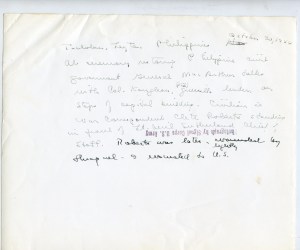 October 23, 1944
Tacloban, Leyte, Philippines
At ceremony setting Filipino civil
government General MacArthur talks
with Col. Kangleon, guerrilla leader on
steps of capitol building. Crouching is
war correspondent Clete Roberts standing
in front of Lt. Gen. Sutherland Chief of
Staff. Roberts was later wounded by
lightly
shrapnel & returned to U.S.
Photograph by Signal Corps U.S. Army